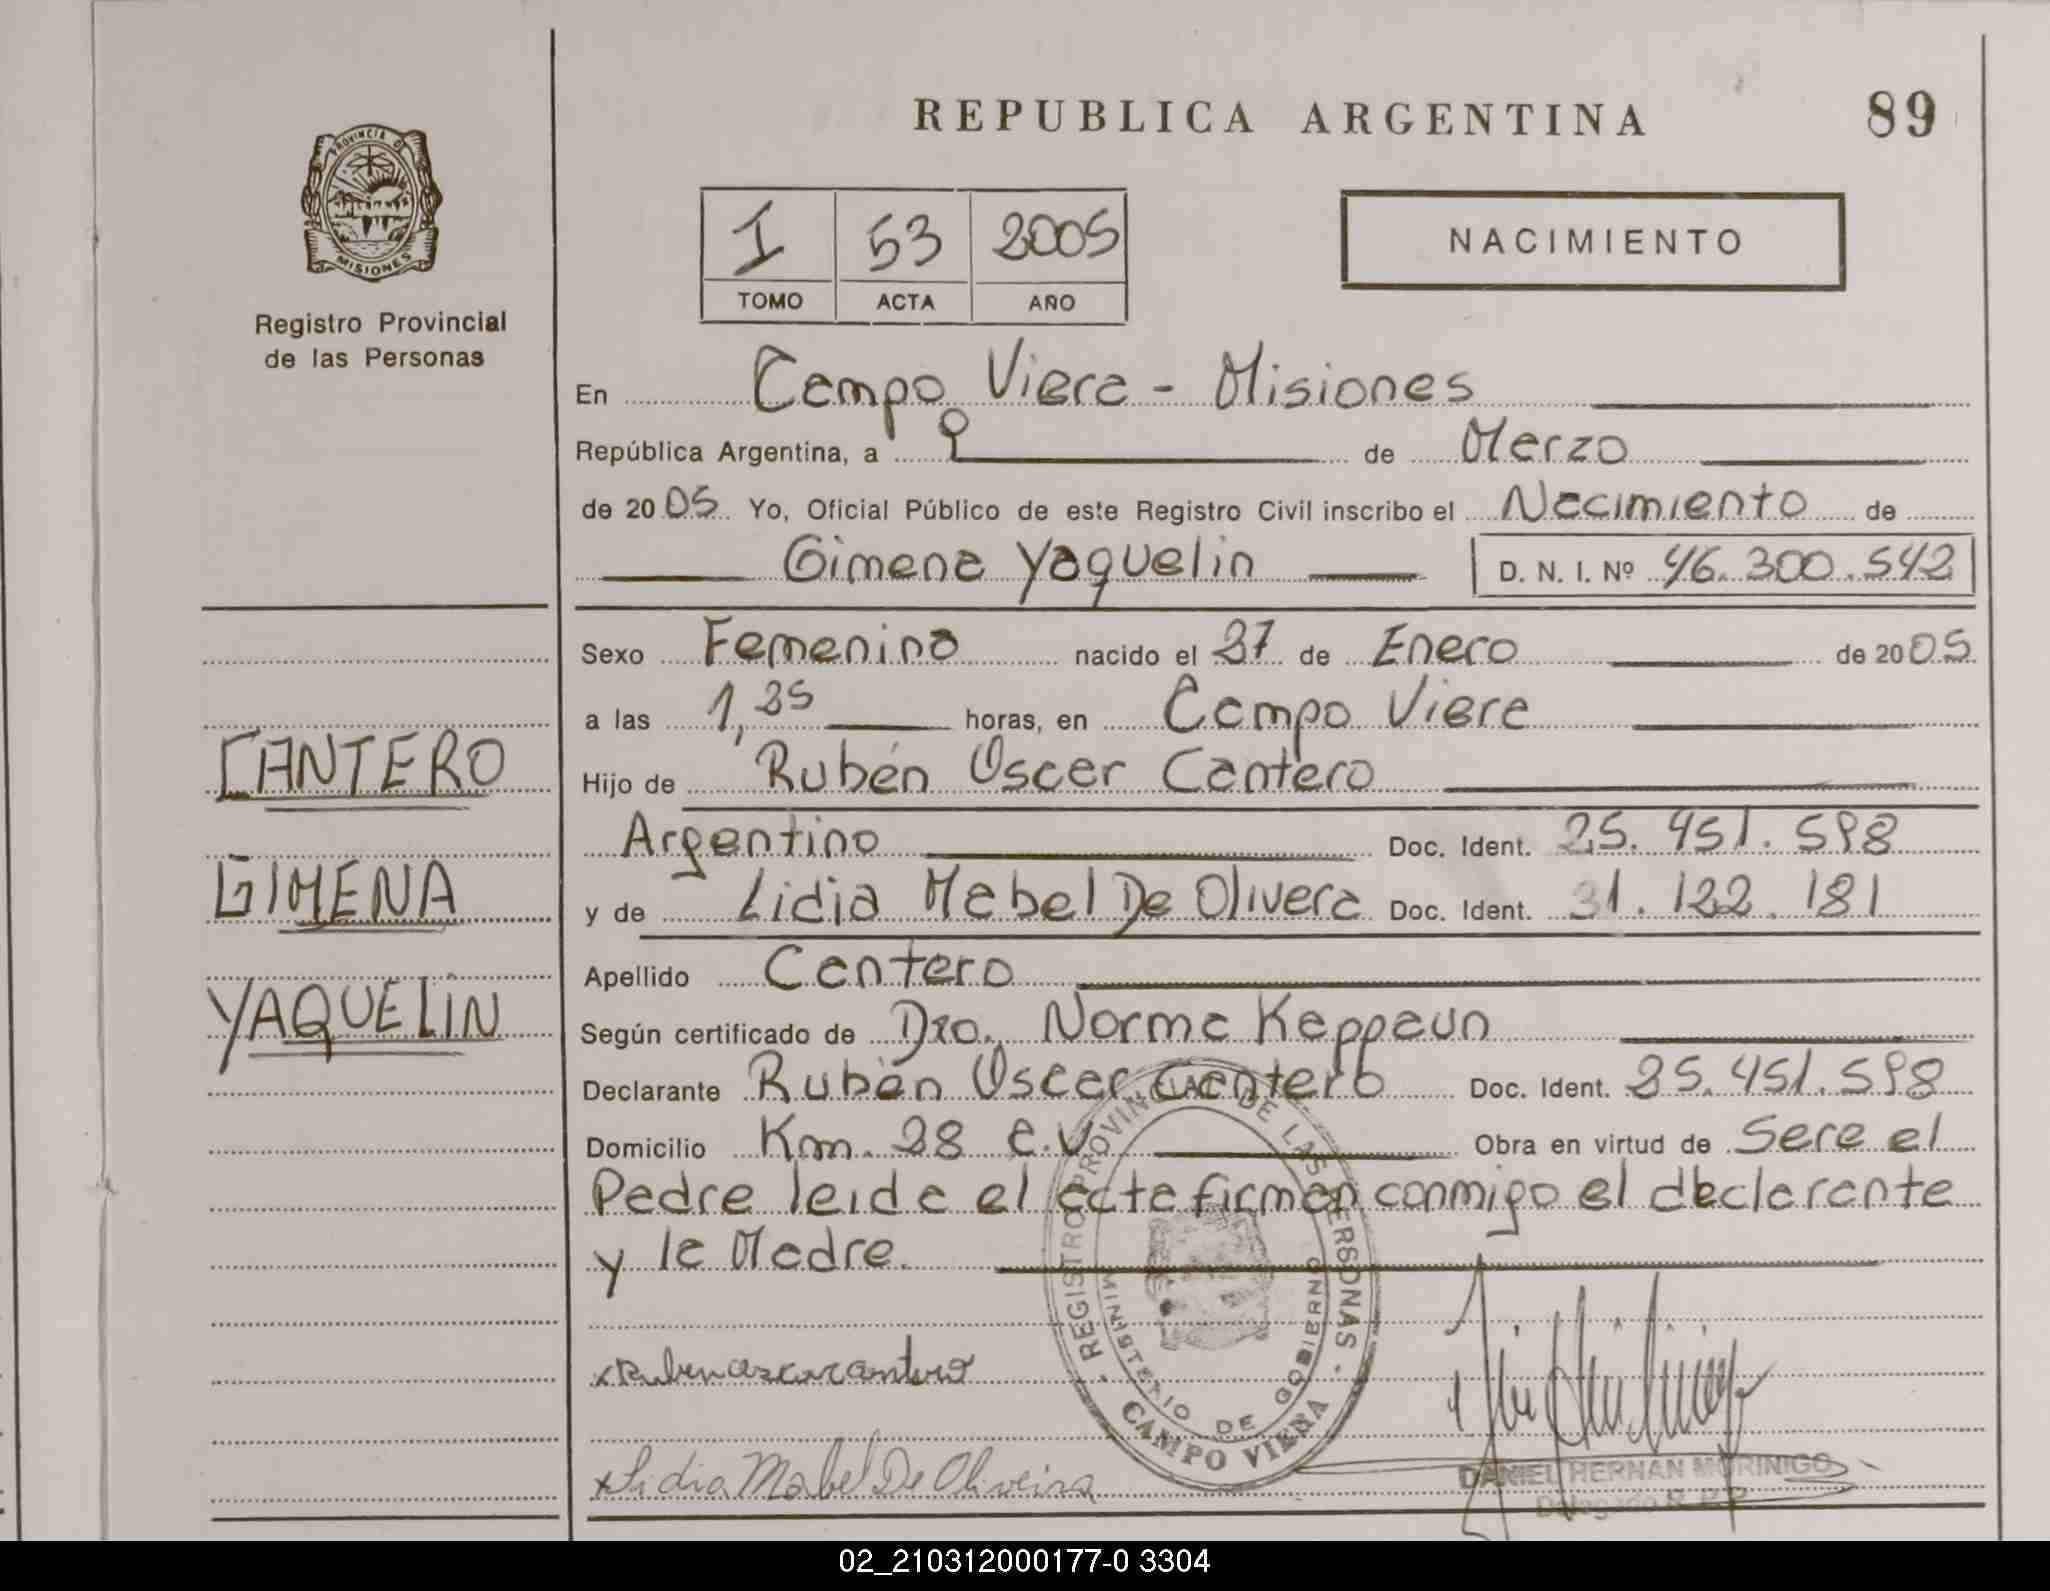 REPUBLICA ARGENTINA
89
PROVINCIA DE
MISIONES
Registro Provincial
de las Personas
I 53 2005
TOMO ACTA AÑO
NACIMIENTO
En Campo Viera - Misiones
República Argentina, a 9 de Marzo
de 2005 Yo, Oficial Público de este Registro Civil inscribo el Nacimiento de
Gimena Yaquelin D. N. I. Nº 46.300.542
Sexo Femenino nacido el 27 de Enero de 2005
a las 1,25 horas, en Campo Viera
Hijo de Rubén Oscar Cantero
Argentino Doc. Ident. 25.451.598
y de Lidia Mabel De Olivera Doc. Ident. 31.122.181
Apellido Cantero
Según certificado de Dra. Norma Keppaun
Declarante Rubén Oscar Cantero Doc. Ident. 25.451.598
Domicilio Km. 28 C.V. Obra en virtud de Sere el
Padre leida el acta firman conmigo el declarante
y la Madre.
CANTERO
GIMENA
YAQUELIN
x Ruben oscar cantero
x Lidia Mabel De Oliveira
REGISTRO PROVINCIAL DE LAS PERSONAS
MINISTERIO DE GOBIERNO
CAMPO VIERA
DANIEL HERNAN MORINIGO
Delegado R. P. P.
02_210312000177-0 3304